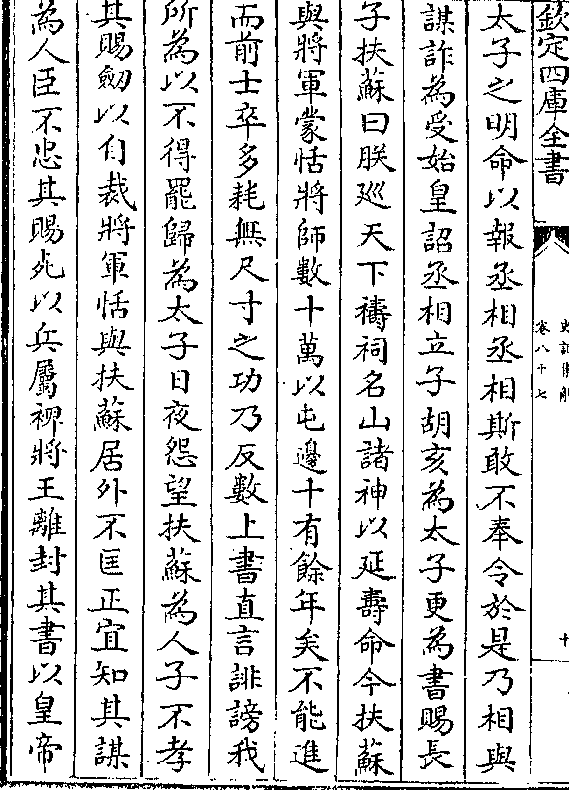 欽定四庫全書
卷八十七
十
太子之明命以報丞相丞相斯敢不奉令於是乃相與
謀詐為受始皇詔丞相立子胡亥為太子更為書賜長
子扶蘇曰朕巡天下禱祠名山諸神以延壽命今扶蘇
與將軍蒙恬將師數十萬以屯邊十有餘年矣不能進
而前士卒多耗無尺寸之功乃反數上書直言誹謗我
所為以不得罷歸為太子日夜怨望扶蘇為人子不孝
其賜劒以自裁將軍恬與扶蘇居外不匡正宜知其謀
為人臣不忠其賜死以兵屬裨將王離封其書以皇帝